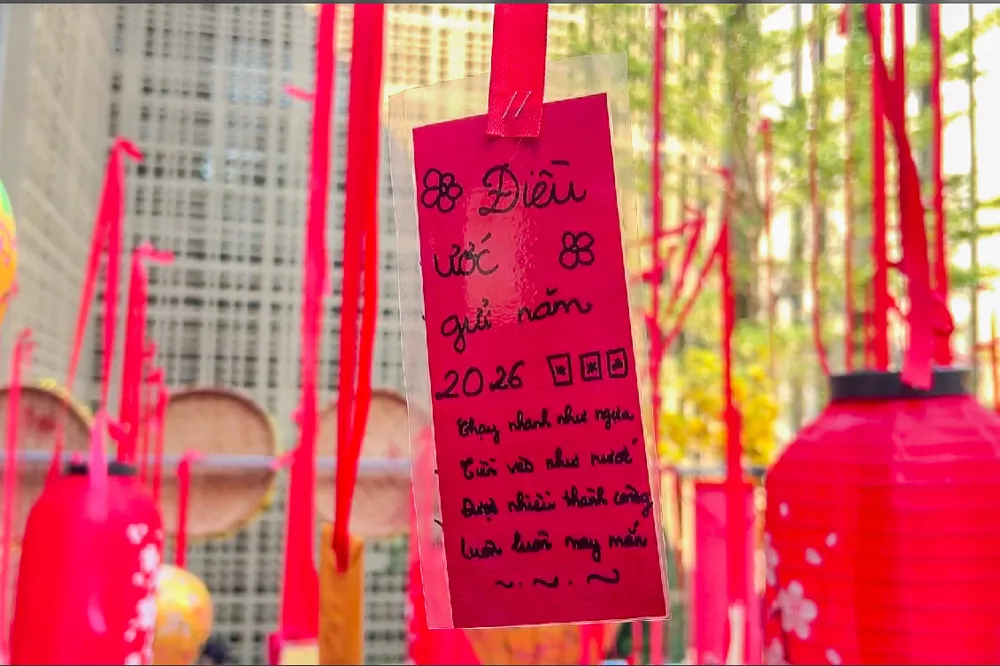 Điều
ước
gửi năm
2026
Chạy nhanh như ngựa
Tiền vào như nước
Được nhiều thành công
Luôn luôn may mắn